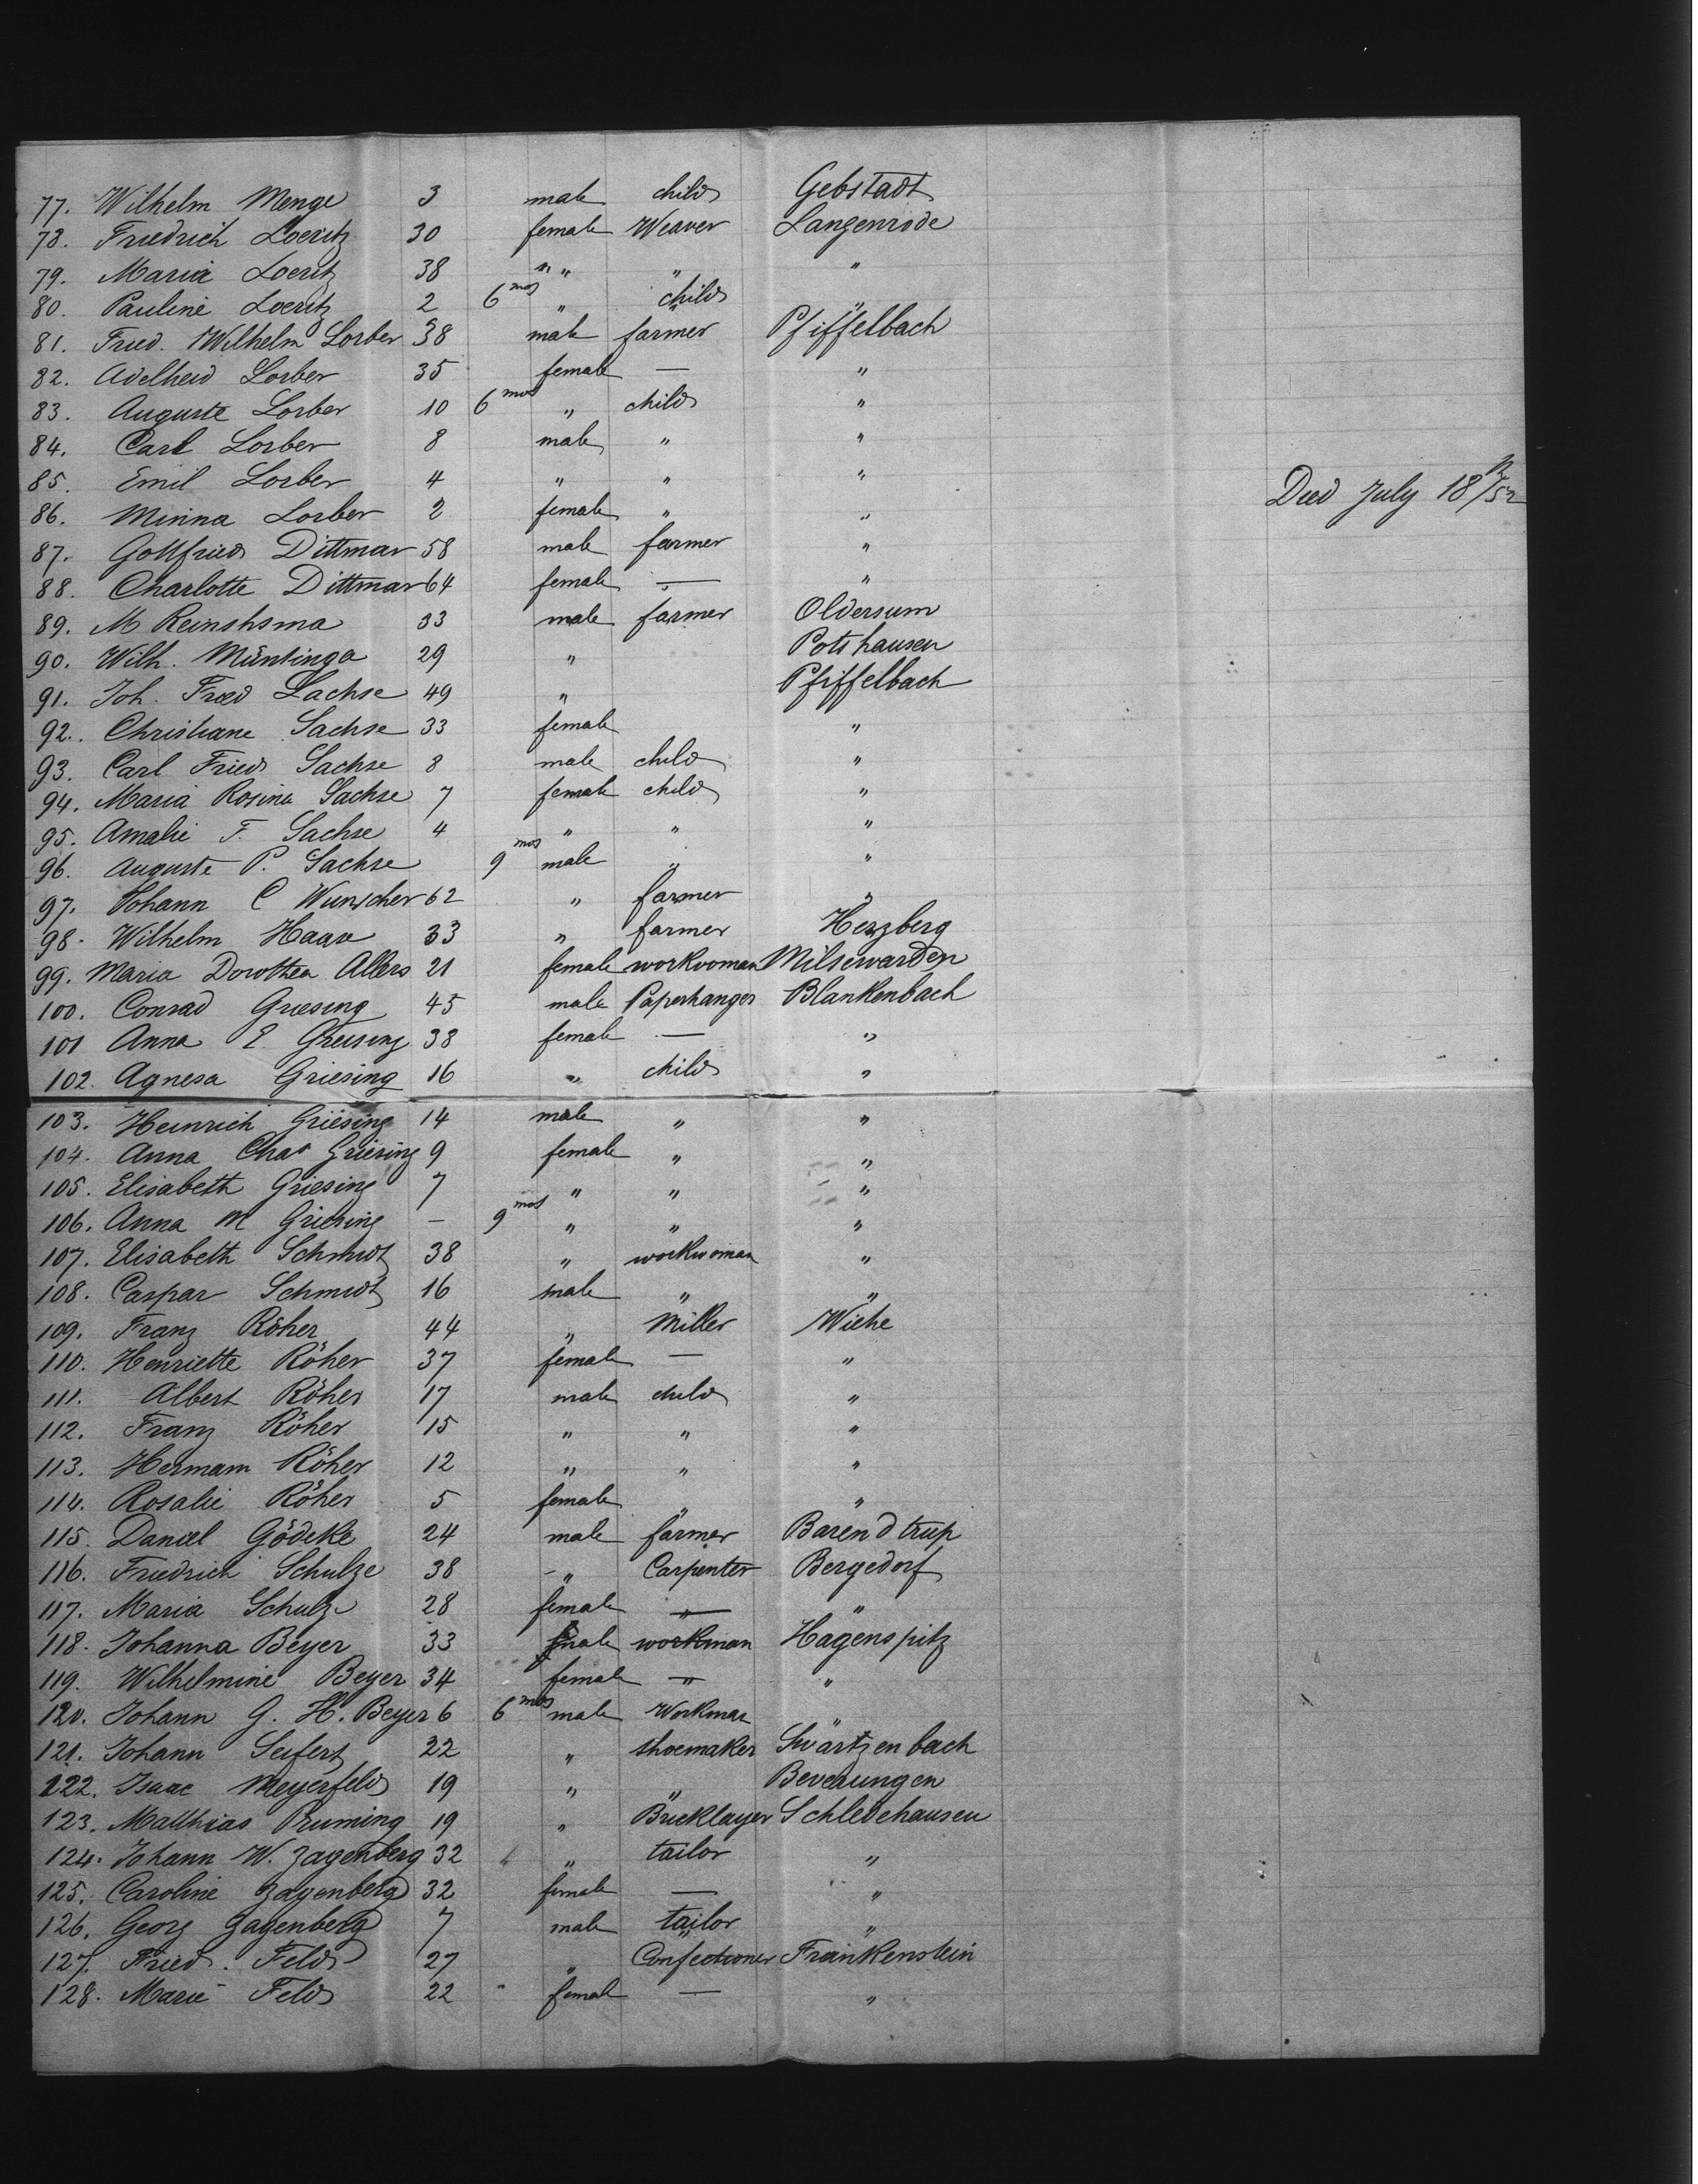 77. Wilhelm Menge 3 male child Gebstadt
78. Friedrich Loeritz 30 female Weaver Langenrode
79. Maria Loeritz 38 " " " "
80. Pauline Loeritz 2 6 mos " child "
81. Fried. Wilhelm Lorber 38 male farmer Pfiffelbach
82. Adelheid Lorber 35 female — "
83. Auguste Lorber 10 6 mos " child "
84. Carl Lorber 8 male " "
85. Emil Lorber 4 " " "
86. Minna Lorber 2 female " " Died July 18th/52
87. Gottfried Dittmar 58 male farmer "
88. Charlotte Dittmar 64 female — "
89. M Reinshsma 33 male farmer Oldersum
90. Wilh. Müntinga 29 " Potshausen
91. Joh. Fried Sachse 49 " Pfiffelbach
92. Christiane Sachse 33 female "
93. Carl Fried Sachse 8 male child "
94. Maria Rosina Sachse 7 female child "
95. Amalie F. Sachse 4 " " "
96. Auguste P. Sachse 9 mos male " "
97. Johann C Wunscher 62 " farmer "
98. Wilhelm Haase 33 " farmer Herzberg
99. Maria Dorothea Allers 21 female workwoman Milsewarden
100. Conrad Griesing 45 male Paperhanger Blankenbach
101 Anna E Griesing 38 female — "
102. Agnesa Griesing 16 " child "
103. Heinrich Griesing 14 male " "
104. Anna Chas Griesing 9 female " "
105. Elisabeth Griesing 7 " " "
106. Anna M Griesing — 9 mos " " "
107. Elisabeth Schmidt 38 " workwoman "
108. Caspar Schmidt 16 male " "
109. Franz Röher 44 " Miller Wiehe
110. Henriette Röher 37 female — "
111. Albert Röher 17 male child "
112. Franz Röher 15 " " "
113. Hermann Röher 12 " " "
114. Rosalie Röher 5 female " "
115. Daniel Gödeke 24 male farmer Barendtrup
116. Friedrich Schulze 38 " Carpenter Bergedorf
117. Maria Schulze 28 female — "
118. Johanna Beyer 33 male workman Hagenspitz
119. Wilhelmine Beyer 34 female — "
120. Johann G. H. Beyer 6 6 mos male Workman "
121. Johann Seifert 22 " shoemaker Swartzenbach
122. Isaac Meyerfeld 19 " " Beverungen
123. Matthias Bruming 19 " Bricklayer Schledehausen
124. Johann W. Zagenberg 32 " tailor "
125. Caroline Zagenberg 32 female — "
126. Georg Zagenberg 7 male tailor "
127. Fried. Feld 27 " Confectioner Frankenstein
128. Marie Feld 22 female — "